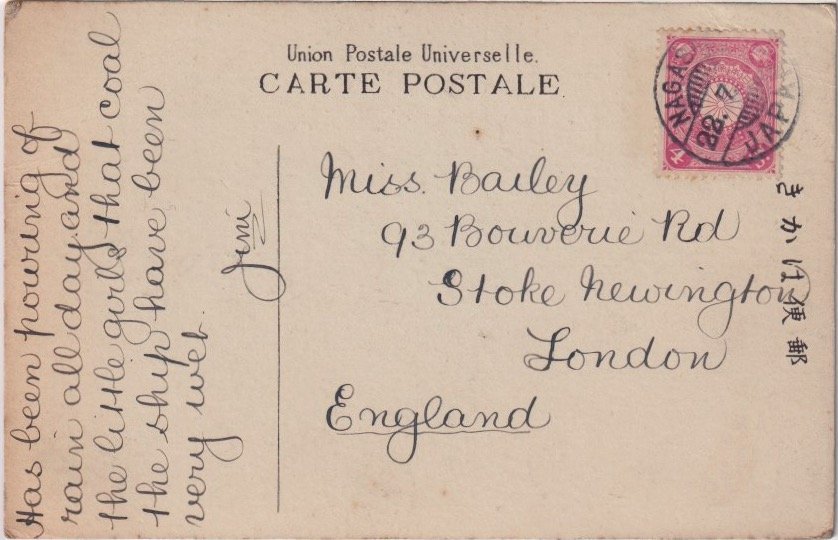 Union Postale Universelle.
CARTE POSTALE
NAGAS
22. 7
JAPA
4
きかは便郵
Miss. Bailey
93 Bouverie Rd
Stoke Newington
London
England
Has been pouring of
rain all day and
the little girls that coal
the ship have been
very wet.
Jim